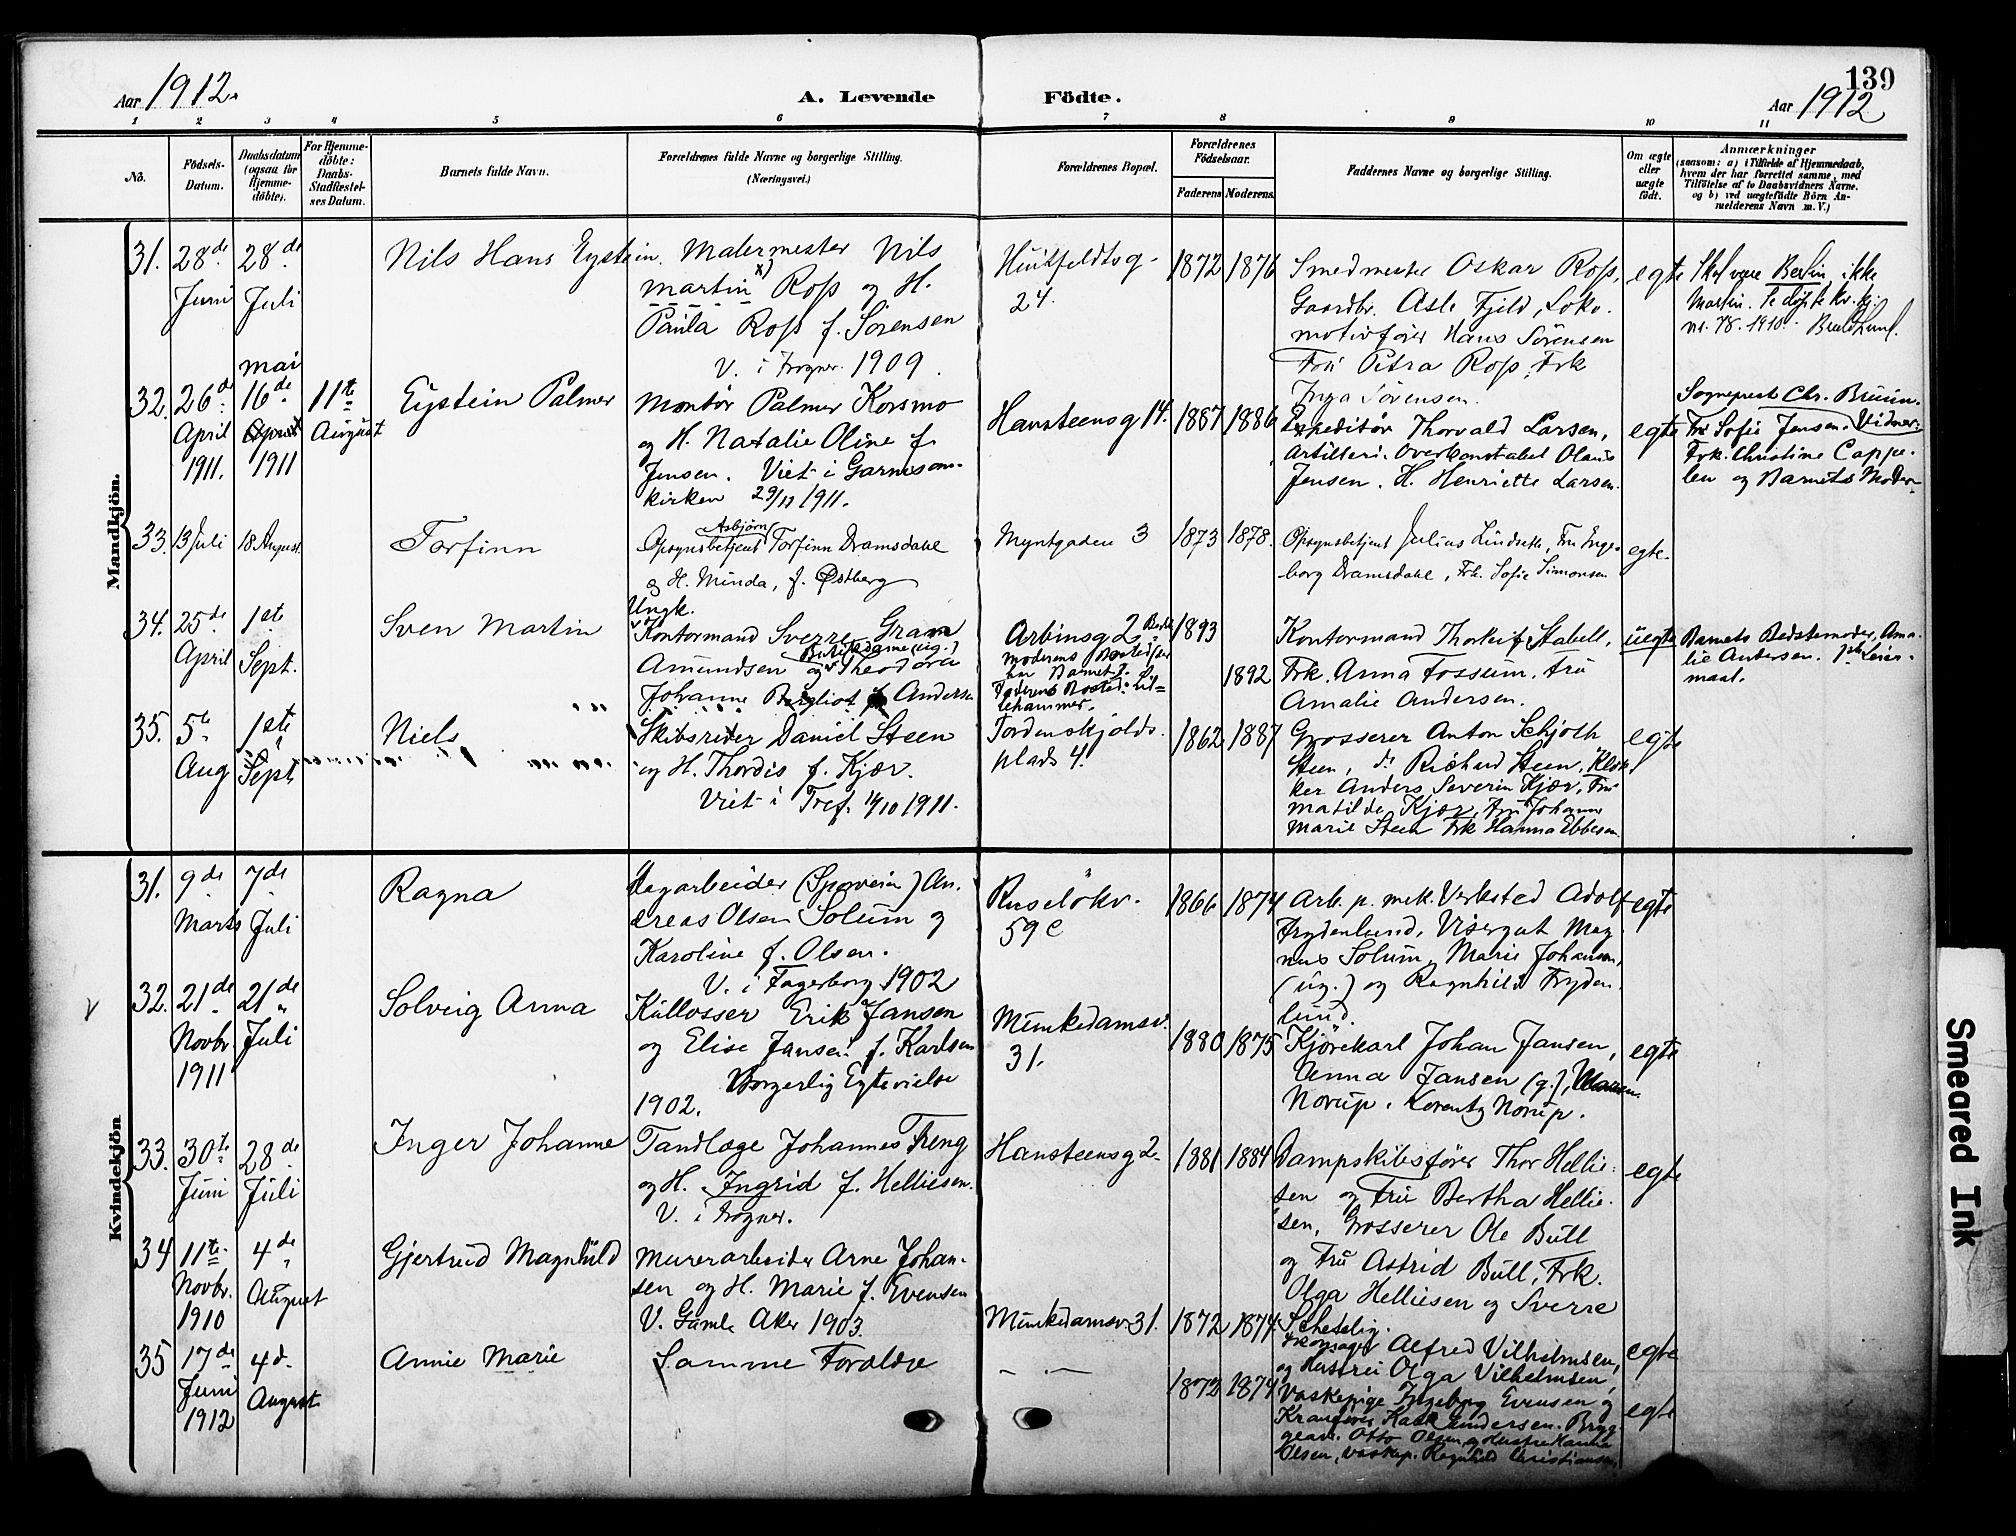 139
Aar 1912.
A. Levende Födte.
Aar 1912
1 2 3 4 5 6 7 8 9 10 11
No.
Födsels-
Datum.
Daabsdatum
(ogsaa for
Hjemme-
döbte).
For Hjemme-
döbte:
Daabs-
Stadfæstel-
ses Datum.
Barnets fulde Navn.
Forældrenes fulde Navne og borgerlige Stilling.
(Næringsvei.)
Forældrenes Bopæl.
Forældrenes
Födselsaar.
Faderens Moderens
Faddernes Navne og borgerlige Stilling.
Om ægte
eller
uægte
födt.
Anmærkninger
(saasom: a) i Tilfælde af Hjemmedaab,
hvem der har forrettet samme, med
Tilföielse af to Daabsvidners Navne,
og b) ved uægtefödte Börn An-
melderens Navn m. V.)
Mandkjön.
31.
28de
Juni
28de
Juli
Nils Hans Eystein.
Malermester Nils
Martin x) Ross og H.
Paula Ross f. Sørensen
V. i Frogner 1909.
Huitfeldtsg.
24.
1872
1876
Smedmester Oskar Ross,
Gaardbr. Asle Fjeld, Loko-
motivfører Hans Sörensen
Fru Petra Ross, Frk
Inga Sörensen.
egte
Skal være Berlin, ikke
Martin.
nr. 78. 1910.
32.
26de
April
1911.
mai
16de
April
1911
11te
August
Eystein Palmer
Montör Palmer Korsmo
og H. Natalie Oline f.
Jensen. Viet i Garnisons-
kirken 29/11 1911.
Hansteensg 14.
1887
1886
Expeditör Thorvald Larsen,
Artilleri. Overkonstabel Olaus
Jensen. H. Henriette Larsen.
egte
Sogneprest Chr. Bruun.
Vidner:
Fru Sofie Jensen.
Frk. Christine Cappe-
len og Barnets Moder.
33.
13 Juli
18 August.
Torfinn
Asbjörn
Opsynsbetjent Torfinn Dramsdahl
og H. Minda, f. Østberg
Myntgaden 3
1873
1878.
Opsynsbetjent Julius Lindseth, Fru Inge-
borg Dramsdahl, Frk. Sofie Simonsen
egte.
34.
25de
April
1ste
Sept.
Sven Martin
Ungk.
Kontormand Sverre Gram
Amundsen og Butikdame (ug.) Theodora
Johanne Bergliot Andersen
Arbinsg 2
Moderens Bosted
Faderens Bosted: Lil=
lehammer.
1893
1892
Kontormand Thorleif Stabell,
Frk. Anna Fossum, Fru
Amalie Andersen.
uegte
Barnets Bedstemoder, Ama-
lie Andersen. Leier-
maal.
35.
5te
Aug
1ste
Sept
Niels
Skibsreder Daniel Steen
og H. Thordis f. Kjær.
Viet i Tref. 11/10 1911.
Tordenskjolds.
plads 4.
1862
1887
Grosserer Anton Schjoth
Steen, do Richard Steen, Klok-
ker Anders Severin Kjær, Fru
Matilde Kjær, Fru Johanne
Marie Steen Frk Hanna Ebbesen.
egte
Kvindekjön.
31.
9de
Marts
7de
Juli
Ragna
Dagarbeider (Sporveien) An-
dreas Olsen Solum og
Karoline f. Olsen.
V. i Fagerborg 1902
Ruselökv.
59 c
1866
1874
Arb. p. mek. Verksted Adolf
Frydenlund, Visergut Mag
nus Solum, Marie Johansen,
(ug.) og Ragnhild Fryden-
lund.
egte
V
32.
21de
Novbr.
1911
21de
Juli
Solveig Anna
Kullosser Erik Jansen
og Elise Jansen f. Karlsen
Borgerlig Egtevielse
1902.
Munkedamsv.
31.
1880
1875
Kjörekarl Johan Jansen,
Anna Jansen (g.),
Norup, Lorentz Norup.
egte
33.
30te
Juni
28de
Juli
Inger Johanne
Tandlæge Johannes Treng
og H. Ingrid f. Helliesen.
V. i Frogner.
Hansteensg 2.
1881
1884
Dampskibsfører Thor Hellie-
sen og Fru Bertha Hellie-
sen, Grosserer Ole Bull
og Fru Astrid Bull, Frk.
Olga Helliesen og Sverre
Schetelig.
egte
34
11te
Novbr.
1910
4de
August
Gjertrud Magnhild
Murerarbeider Arne Johan-
sen og H. Marie f. Evensen
V. Gamle Aker 1903.
Munkedamsv 31.
1872
1874
Alfred Vilhelmsen,
og Hustru Olga Vilhelmsen,
egte
35
17de
Juni
1912
4d.
August
Annie Marie
Samme Foraldre
— —
1872
1874
Vaskepige Ingeborg Evensen og
Kranfører Andersen. Bryg-
gearb. Otto Olsen og Hustru Hanna
Olsen, Vaskep. Ragnhild Christiansen.
egte
Smeared Ink